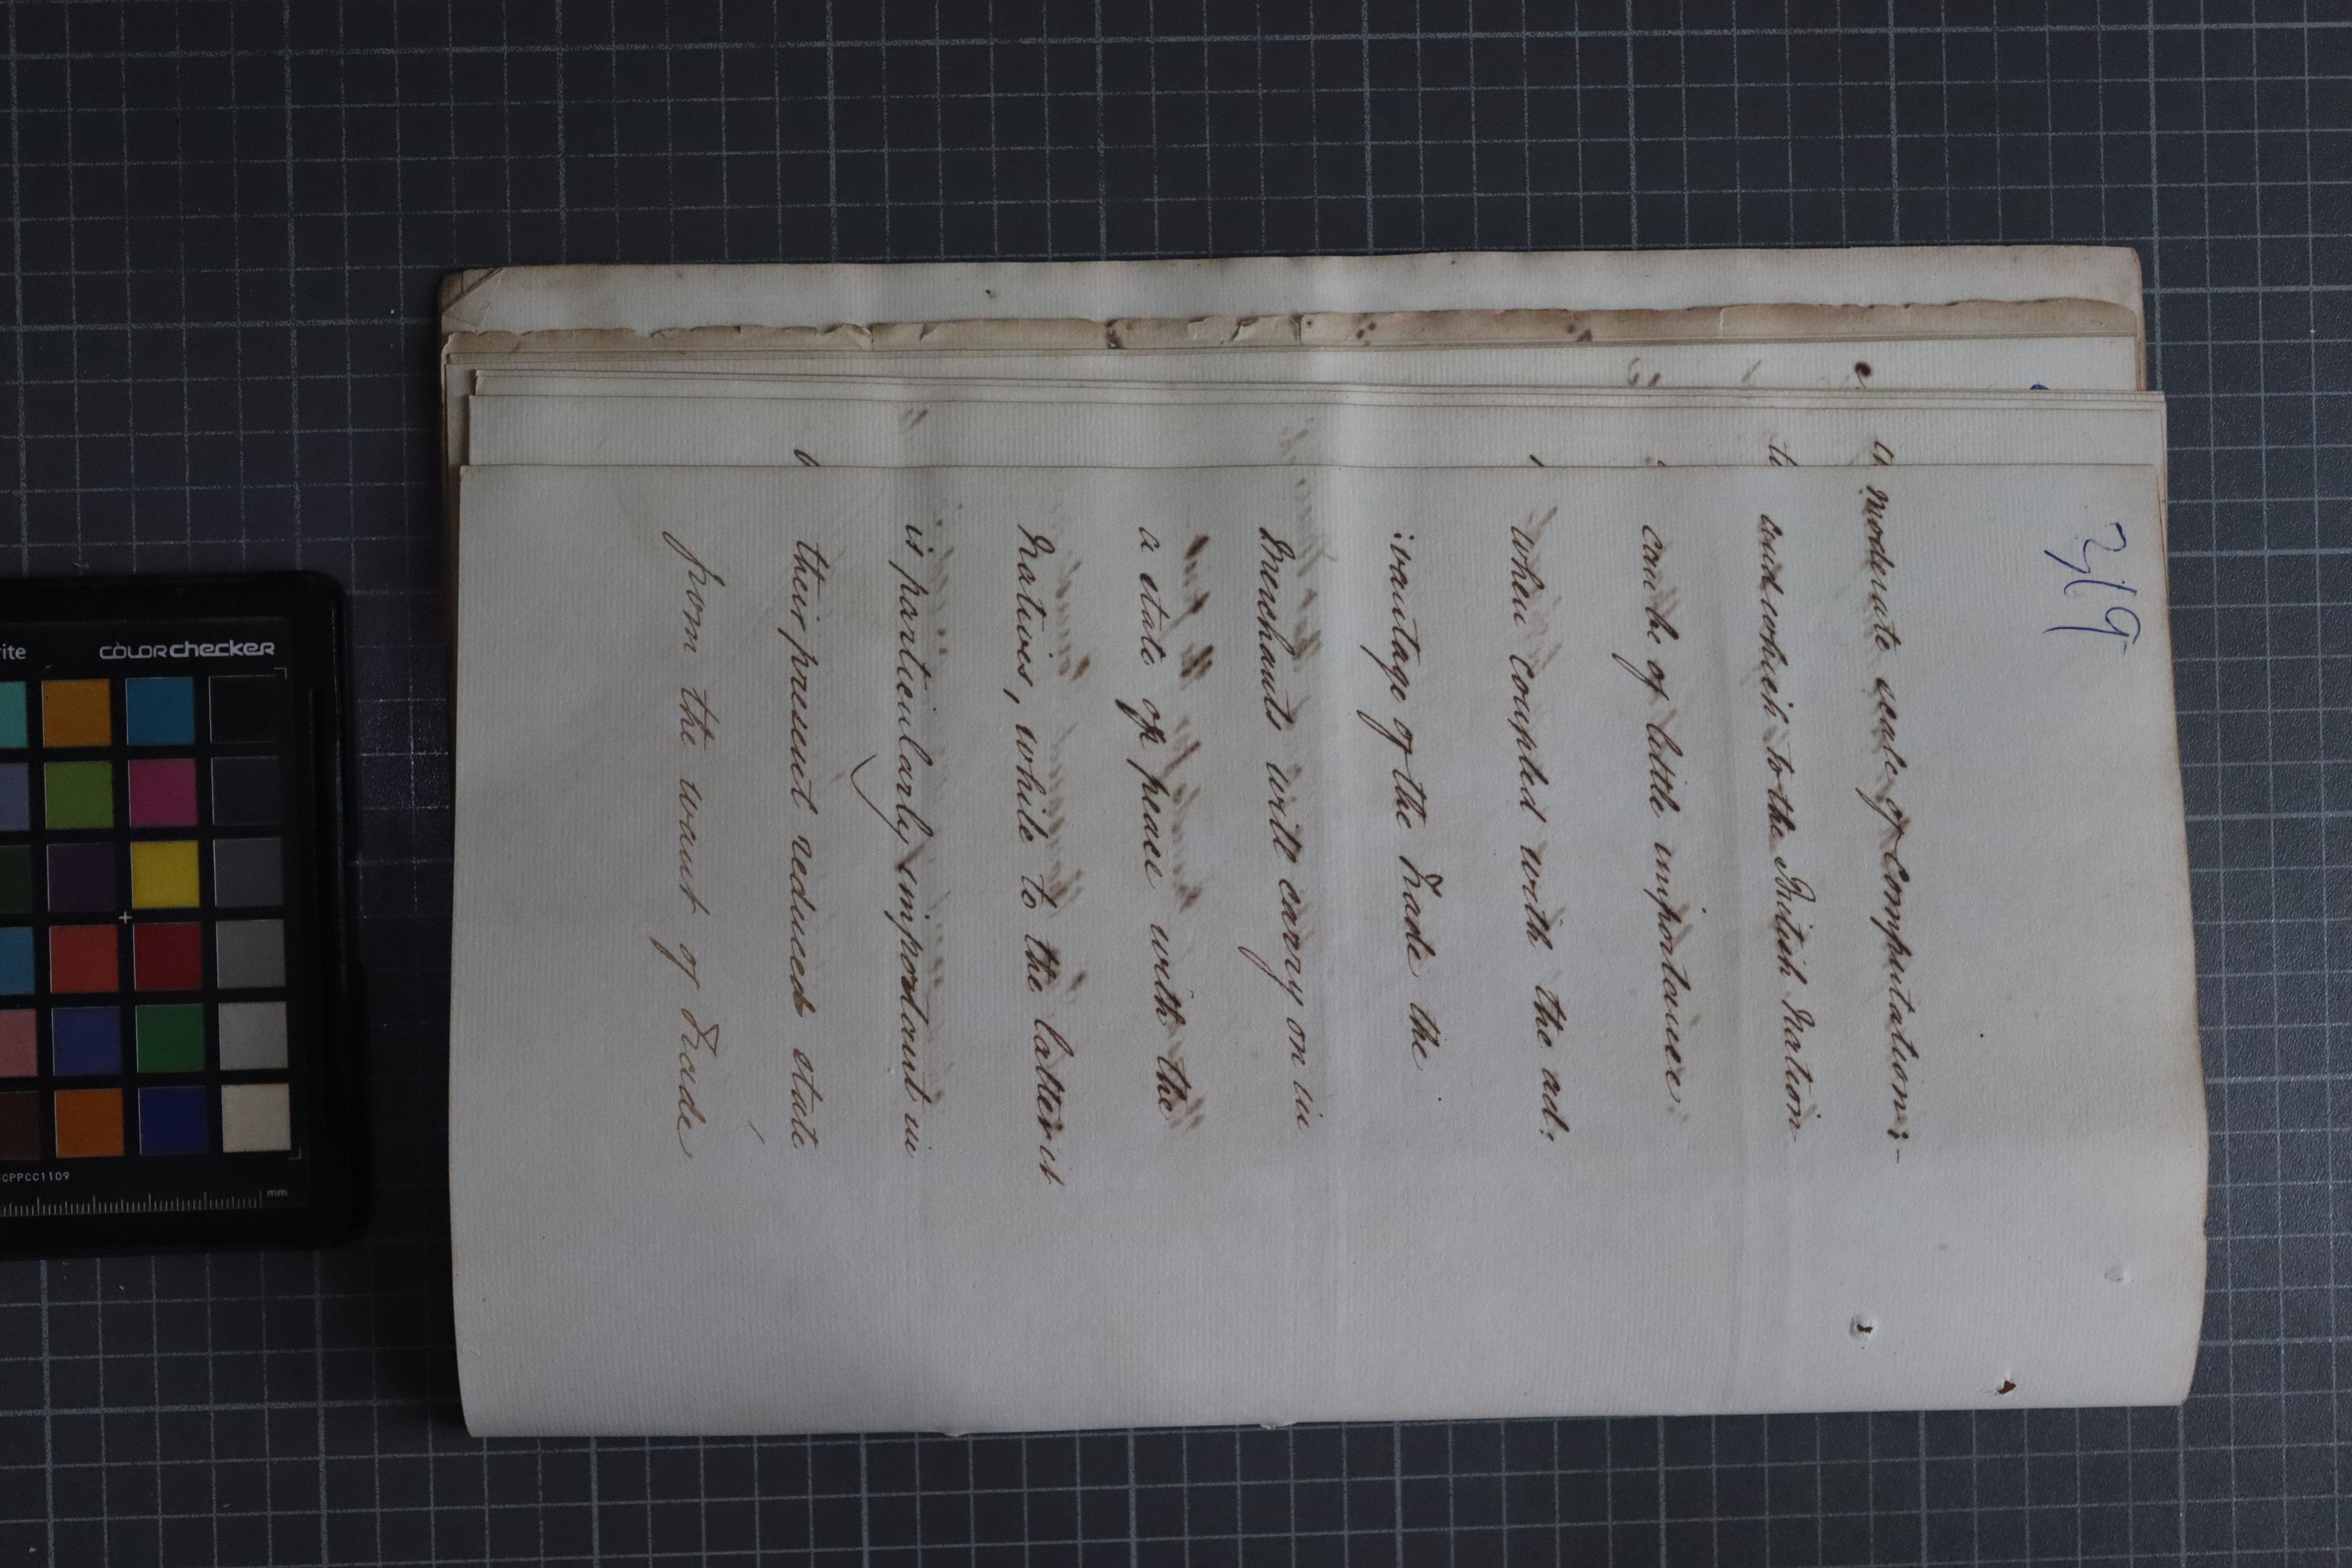 319
moderate scale of Computation:-
and which to the British Nation
can be of little importance
when coupled with the ad:
:vantage of the Trade the
Merchants will carry on in
a state of peace with the
Natives, while to the latter it
is particularly important in
their present reduced state
from the want of Trade
rite
COLORchecker
CPPCC1109
mm